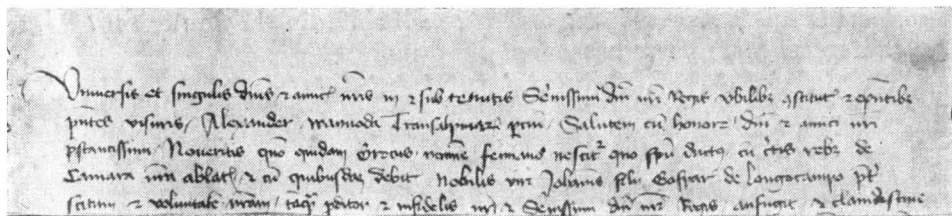 Universis et singulis dnis et amicis nris in et sub tenutis Serenissimi dni nri Regis ubilibet constitutis et
pntes visuris Alexander waiwoda Transalpinar pcium Salutem cum honore dni et amici nri
pstantissimi Noveritis quo quidam Grecus nomine nescit quo spu ductus cu ctis rebus de
Camara nra ablatis et cu quibusdam debitis Nobilis viri Johannis filii de Longocampo pt
scitum et voluntatem nram tamq et infidelis nr et Serenissimi dni nri Regis aufugit et clamdestine